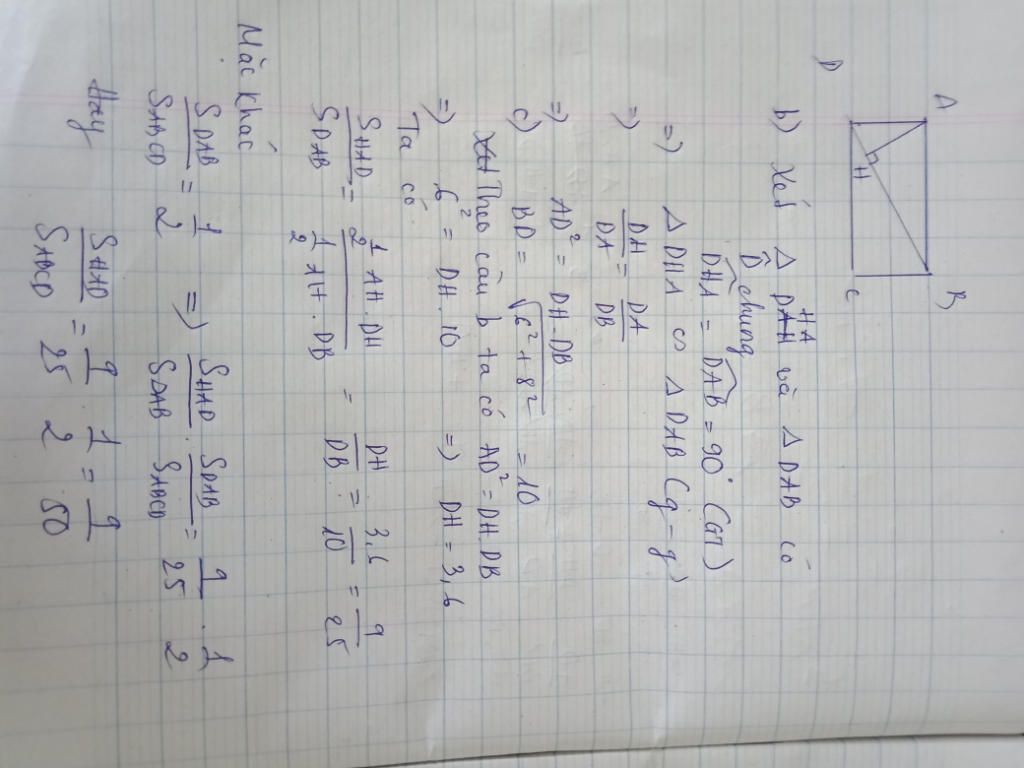 A B
H
D C
b) Xét Δ DHA và Δ DAB có
D̂ chung
DHA = DAB = 90° (GT)
=> Δ DHA ∽ Δ DAB (g-g)
=> DH/DA = DA/DB
=> AD² = DH.DB
c) BD = √(6² + 8²) = 10
Theo câu b ta có AD² = DH.DB
=> 6² = DH.10 => DH = 3,6
Ta có
S HAD / S DAB = 1/2 AH.DH / 1/2 AH.DB = DH/DB = 3,6/10 = 9/25
Mặc khác
S DAB / S ABCD = 1/2 => S HAD / S DAB . S DAB / S ABCD = 9/25 . 1/2
Hay S HAD / S ABCD = 9/25 1/2 = 9/50